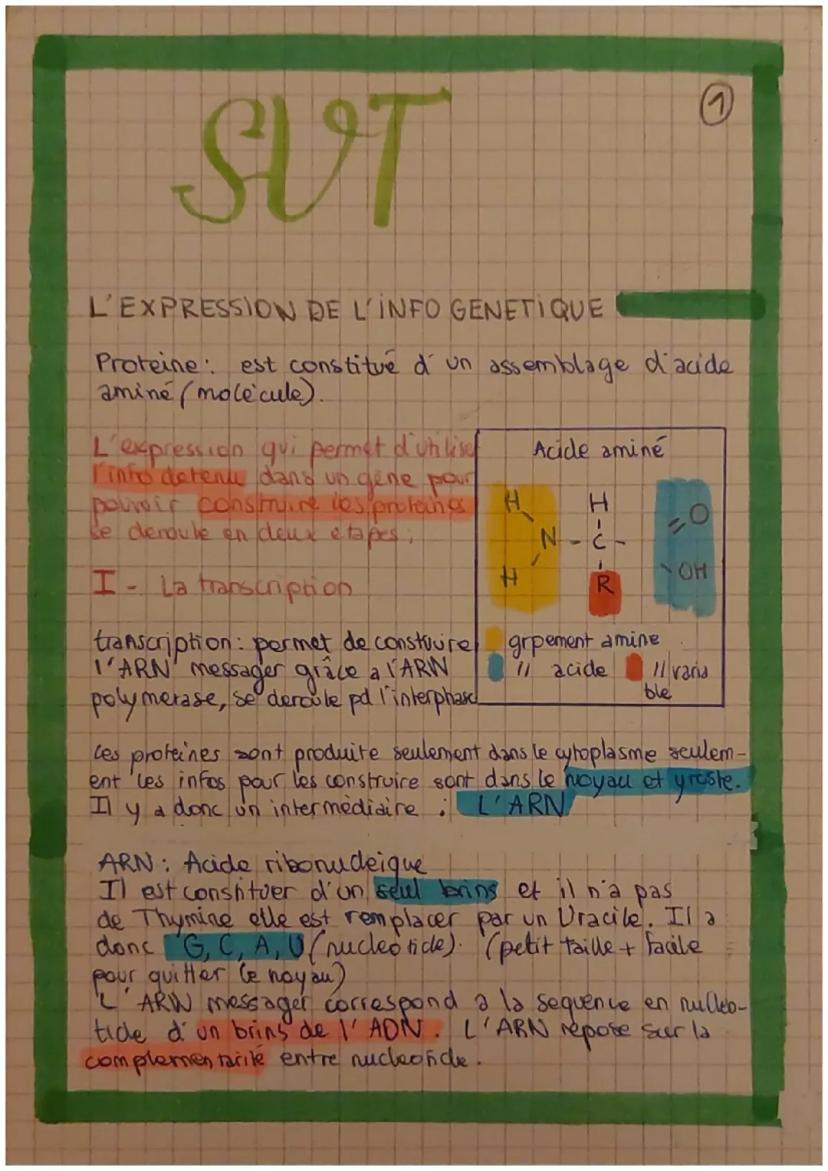 1
SVT
L'EXPRESSION DE L'iNFO GENETiQUE
Proteine: est constitué d'un assemblage d'acide
aminé (molécule).
L'expression qui permet d'utilise
l'info detenu dans un gène pour
pouvoir construire les proteines
se deroule en deux etapes;
I - La transcription
transcription: permet de constuire
l'ARN messager grâce a l'ARN
polymerase, se deroule pd l'interphase
Acide aminé
H H O
N - C -
H R OH
grpement amine
// acide // varia
ble
Les proteines sont produite seulement dans le cytoplasme seulem-
ent les infos pour les construire sont dans le noyau et y reste.
Il y a donc un intermédiaire : L'ARN
ARN: Acide ribonudeique
Il est constituer d'un seul brins et il n'a pas
de Thymine elle est remplacer par un Uracile. Il a
donc G, C, A, U (nucleotide). (petit taille + facile
pour quitter le noyau)
L'ARN messager correspond a la sequence en nulleo-
tide d'un brins de l'ADN. L'ARN repose sur la
complementarité entre nucleotide.